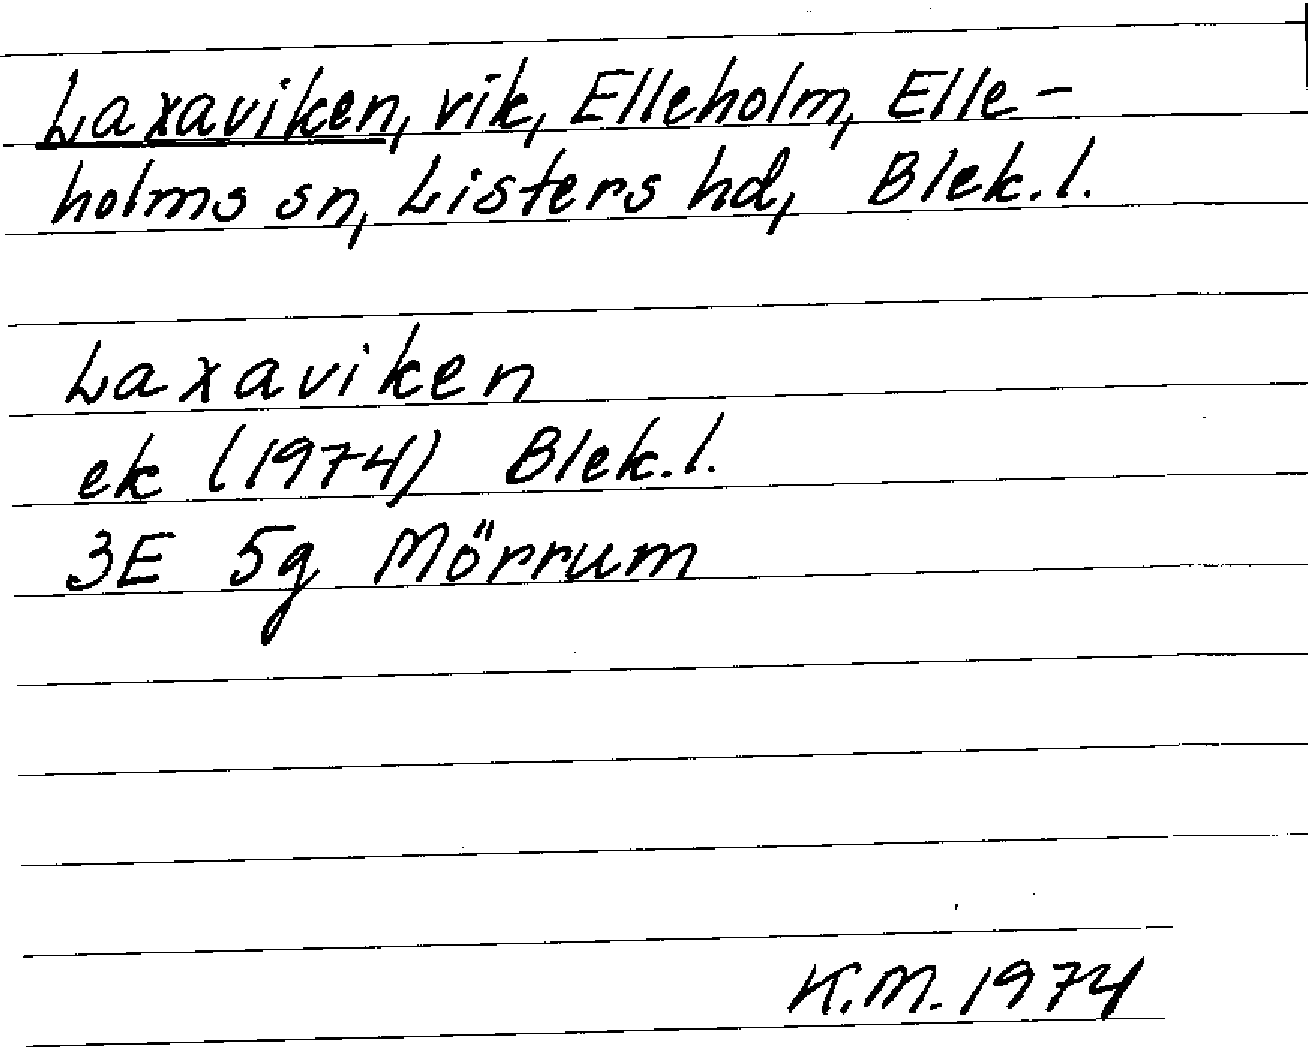 Laxaviken, vik, Elleholm, Elle-
holms sn, Listers hd, Blek.l.
Laxaviken
ek (1974) Blek.l.
3E 5g Mörrum
K.M. 1974